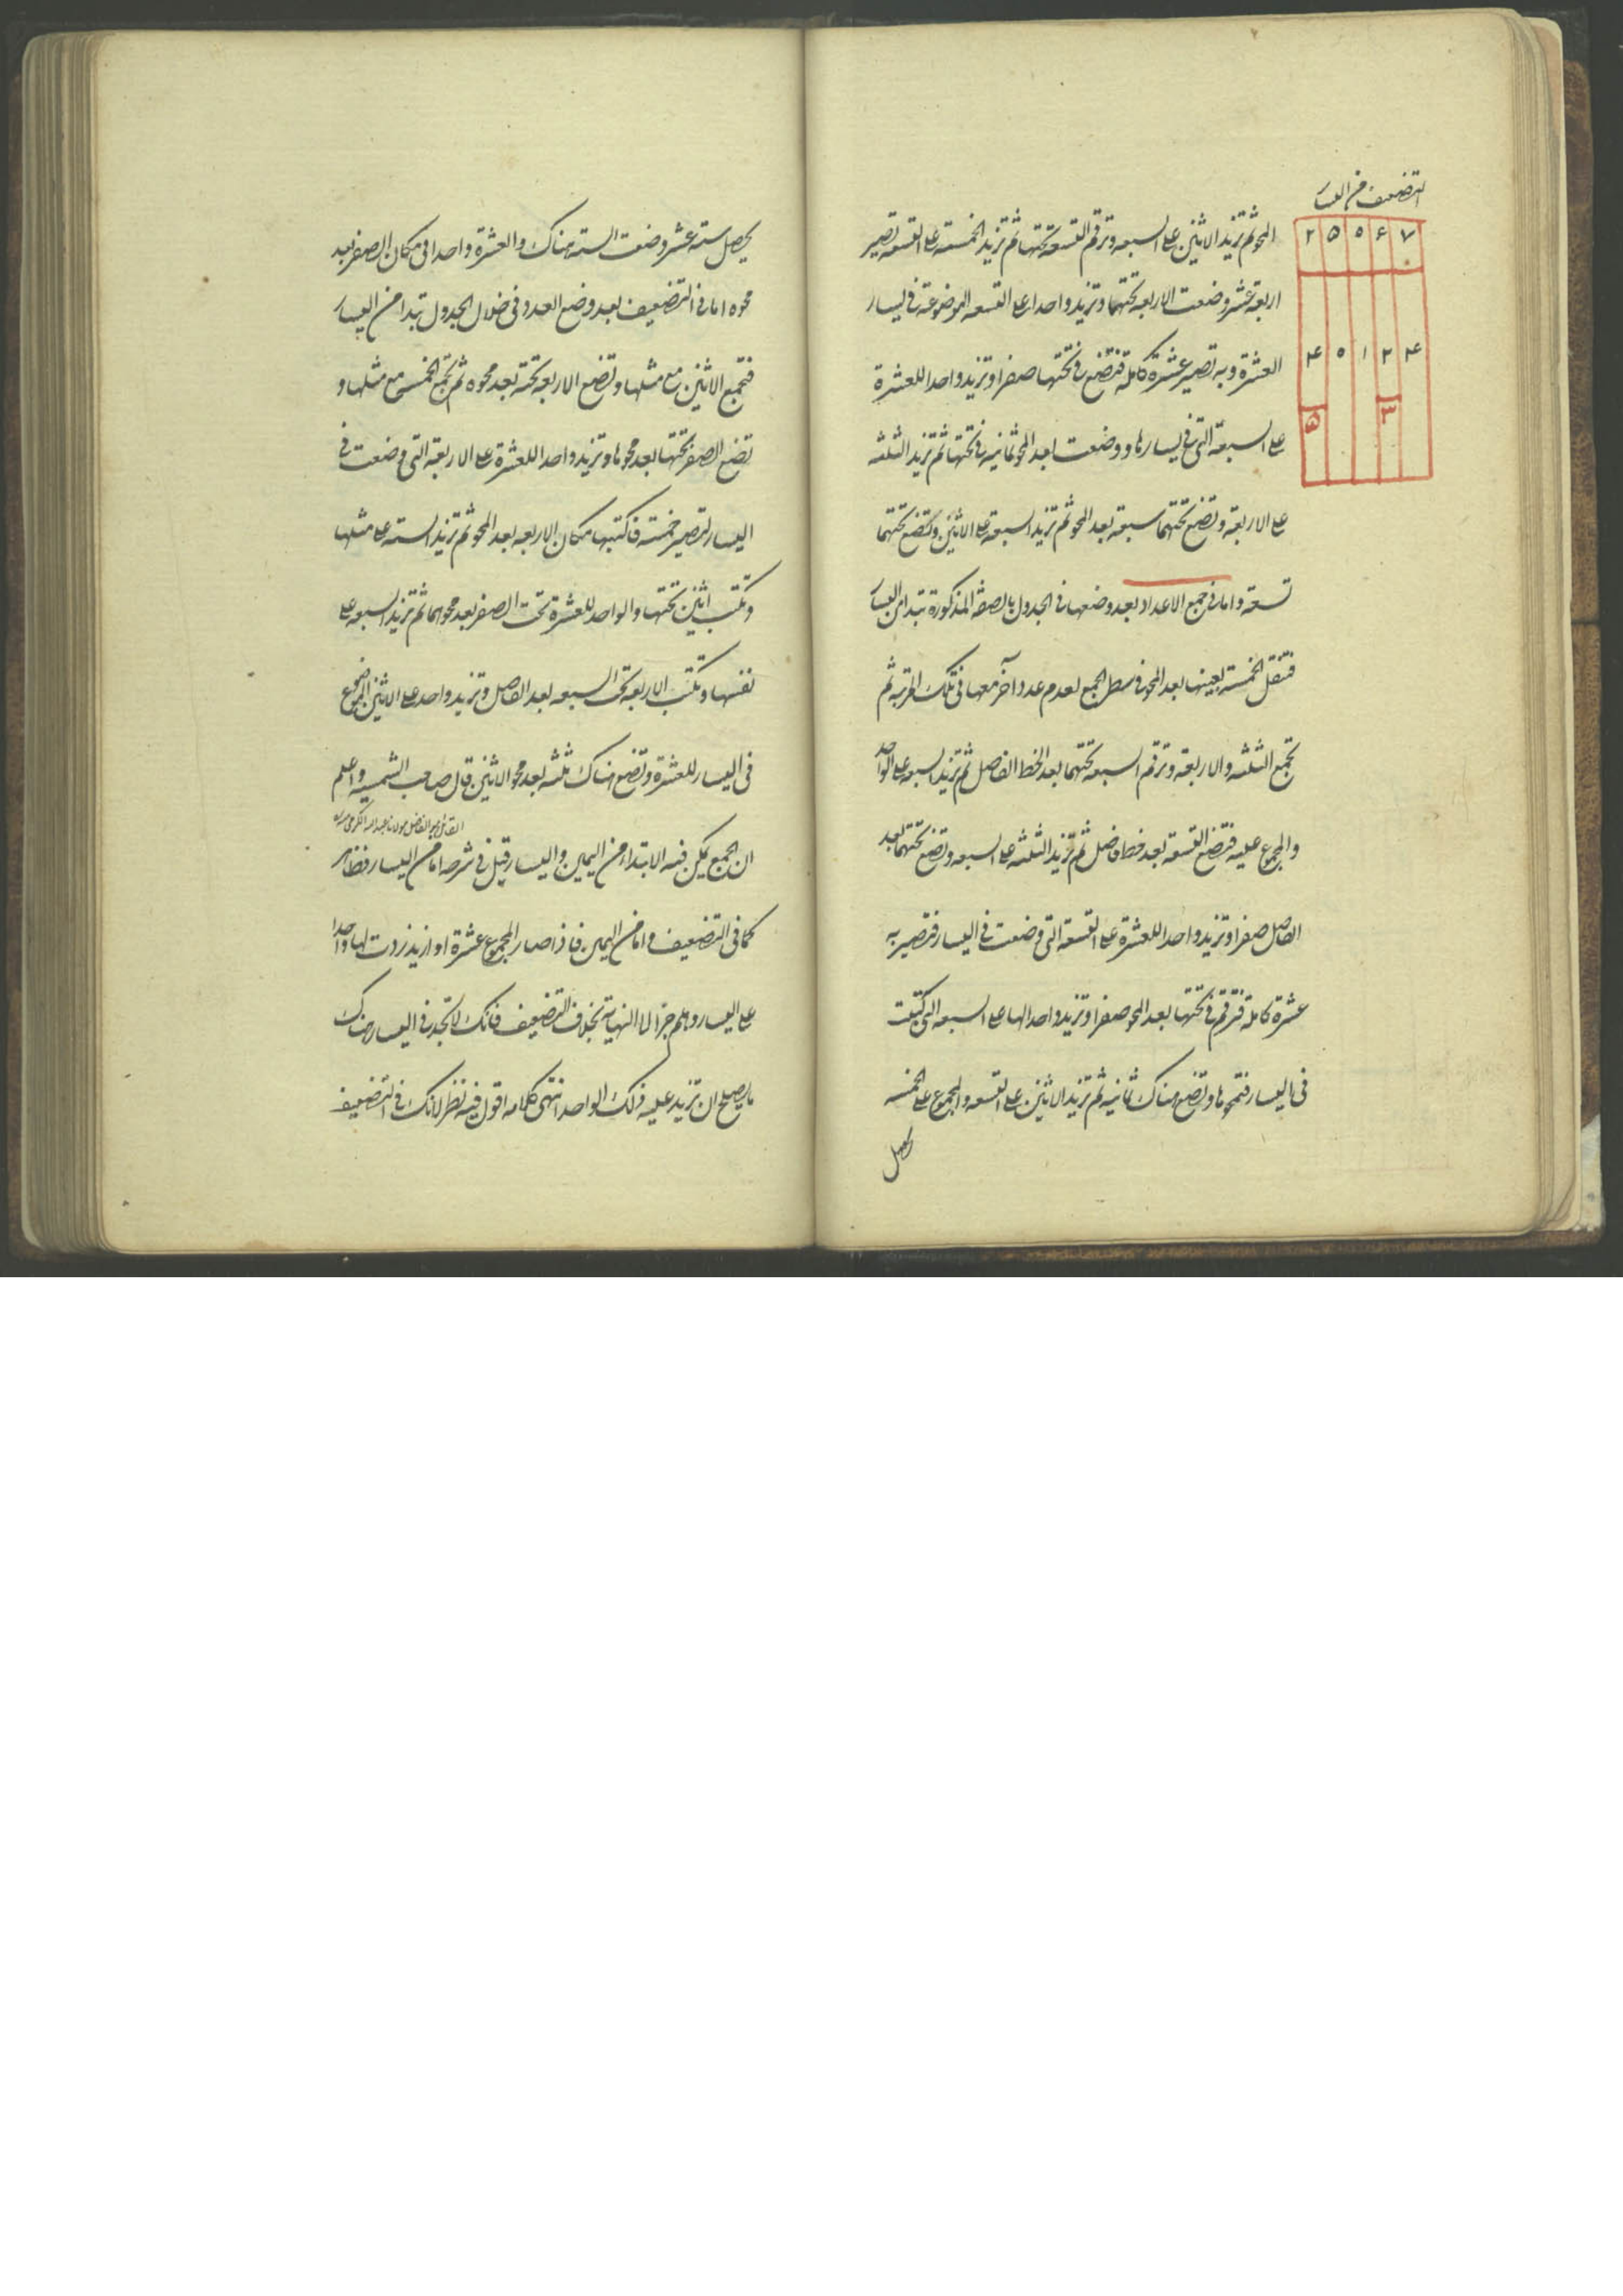 التضعيف من اليسار
٢ ٥ ٠ ۶ ٧
۴ ٠ ١ ٢ ۴
٥ ٣
المحو ثم تزيد الاثنين على السبعه وترقم التسعة تحتها ثم تزيد الخمسة على التسعه تصير
اربعة عشر وضعت الاربعه تحتهما وتزيد واحدا على التسعه الموضوعة في يسار
العشرة وبه تصير عشرة كاملة فتضع في تحتها صفرا وتزيد واحدا للعشرة
على السبعة التي في يسارها ووضعت بعد المحو ثمانيه في تحتها ثم تزيد الثلثه
على الاربعة وتضع تحتهما سبعة بعد المحو ثم تزيد السبعة على الاثنين وتضع تحتهما
تسعة واما في جمع الاعداد بعد وضعها في الجدول بالصفة المذكورة تبتدا من اليسار
فتنقل الخمسة بعينها بعد المحو في سطر الجمع لعدم عدد آخر معها في تلك المرتبة ثم
تجمع الثلثه والاربعة وترقم السبعة تحتهما بعد الخط الفاصل ثم تزيد السبعه على الواحد
والمجموع عليه فتضع التسعة بعد خط فاصل ثم تزيد الثلثه على السبعه وتضع تحتهما بعد
الفاصل صفرا وتزيد واحدا للعشرة على التسعة التي وضعت في اليسار فتصير به
عشرة كاملة فترقم في تحتها بعد المحو صفرا وتزيد واحدا لها على السبعه التي كتبت
في اليسار فتمحوها وتضع هناك ثمانية ثم تزيد الاثنين على التسعه والمجموع على الخمسه
يحصل
يحصل ستة عشر وضعت الستة هناك والعشرة واحدا في مكان الصفر بعد
محوه اما في التضعيف بعد وضع العدد في خلال الجدول تبدا من اليسار
فتجمع الاثنين مع مثلها وتضع الاربعه تحته بعد محوه ثم تجمع الخمسة مع مثلها و
تضع الصفر تحتها بعد محوها وتزيد واحدا للعشرة على الاربعة التي وضعت في
اليسار لتصير خمسة فاكتبها مكان الاربعه بعد المحو ثم تزيد السته على مثلها
وتكتب اثنين تحتها والواحد للعشرة تحت الصفر بعد محوهما ثم تزيد السبعه على
نفسها وتكتب الاربعه تحت السبعه بعد الفاصل وتزيد واحدا على الاثنين الموضوع
في اليسار للعشرة وتضع هناك ثلثه بعد محو الاثنين قال صاحب الشمسية واعلم
القائل هو الفاضل مولانا عبد الله
ان الجمع يمكن فيه الابتداء من اليمين واليسار قيل في شرحه اما من اليسار فظاهر
كما في التضعيف واما من اليمين فاذا صار المجموع عشرة او ازيد زدت لها واحدا
على اليسار وهلم جرا الى النهاية بخلاف التضعيف فانك لا تجد في اليسار هناك
ما يصلح ان تزيد عليه ذلك الواحد انتهى كلامه اقول فيه نظر لانك في التضعيف